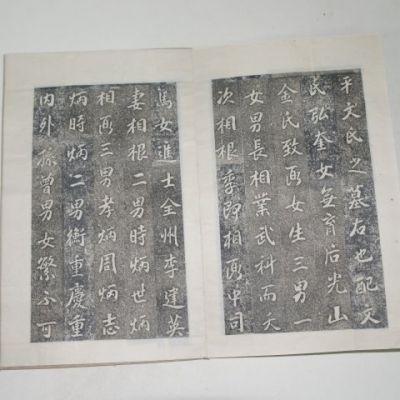 平文氏之墓右也配文
氏弘奎女無育后光山
金氏致 女生三男一
女男長相業武科而夭
次相根季 相 中司
馬女進士全州李建英
妻相根二男時炳世炳
相 三男孝炳周炳志
炳時炳二男衡重慶重
内外孫曾男女繁不可